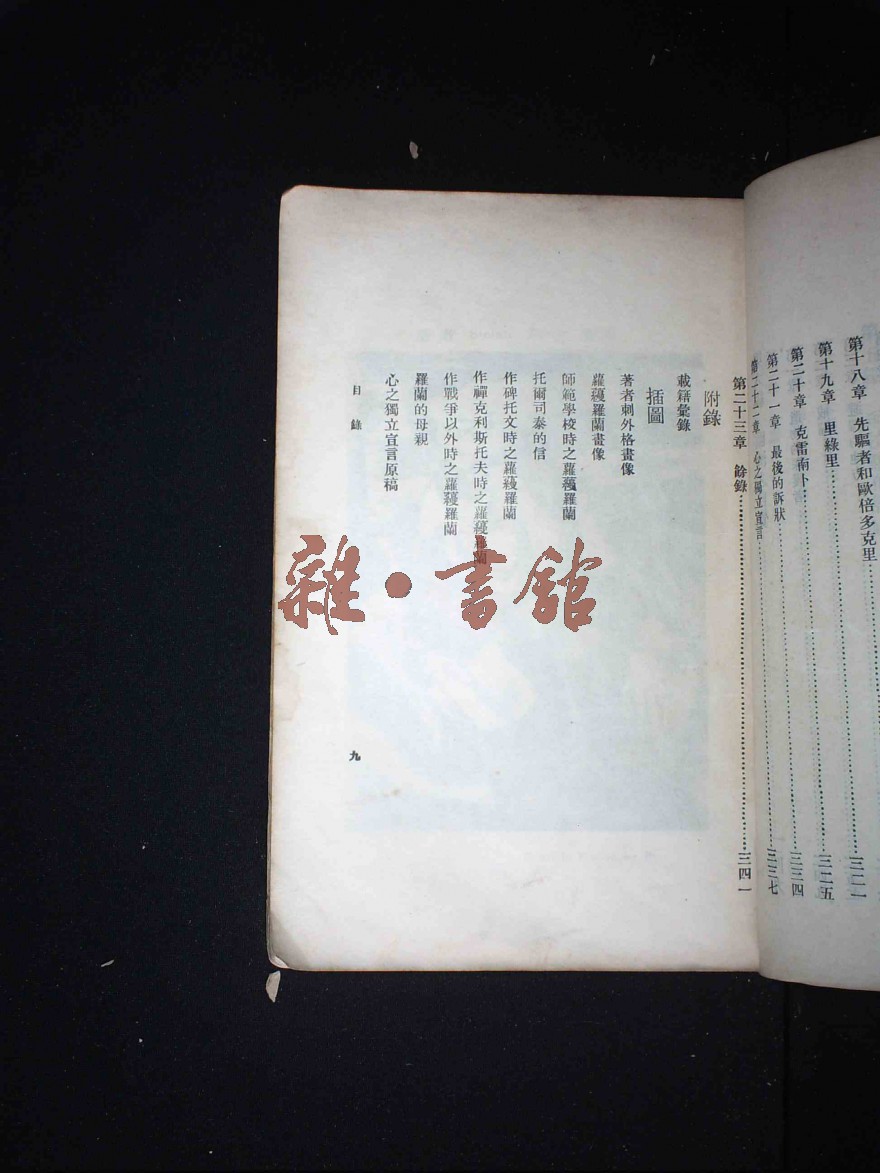 第十八章　先驅者和歐倍多克里……三二一
第十九章　里綠里……三二五
第二十章　克雷南卜……三三四
第二十一章　最後的訴狀……三三七
第二十二章　心之獨立宣言……
第二十三章　餘錄……三四一
附錄
載籍彙錄
插圖
著者刺外格畫像
蘿蔓羅蘭畫像
師範學校時之蘿蔓羅蘭
托爾司泰的信
作碑托文時之蘿蔓羅蘭
作禪克利斯托夫時之蘿蔓羅蘭
作戰爭以外時之蘿蔓羅蘭
羅蘭的母親
心之獨立宣言原稿
目錄
九
雜·書館